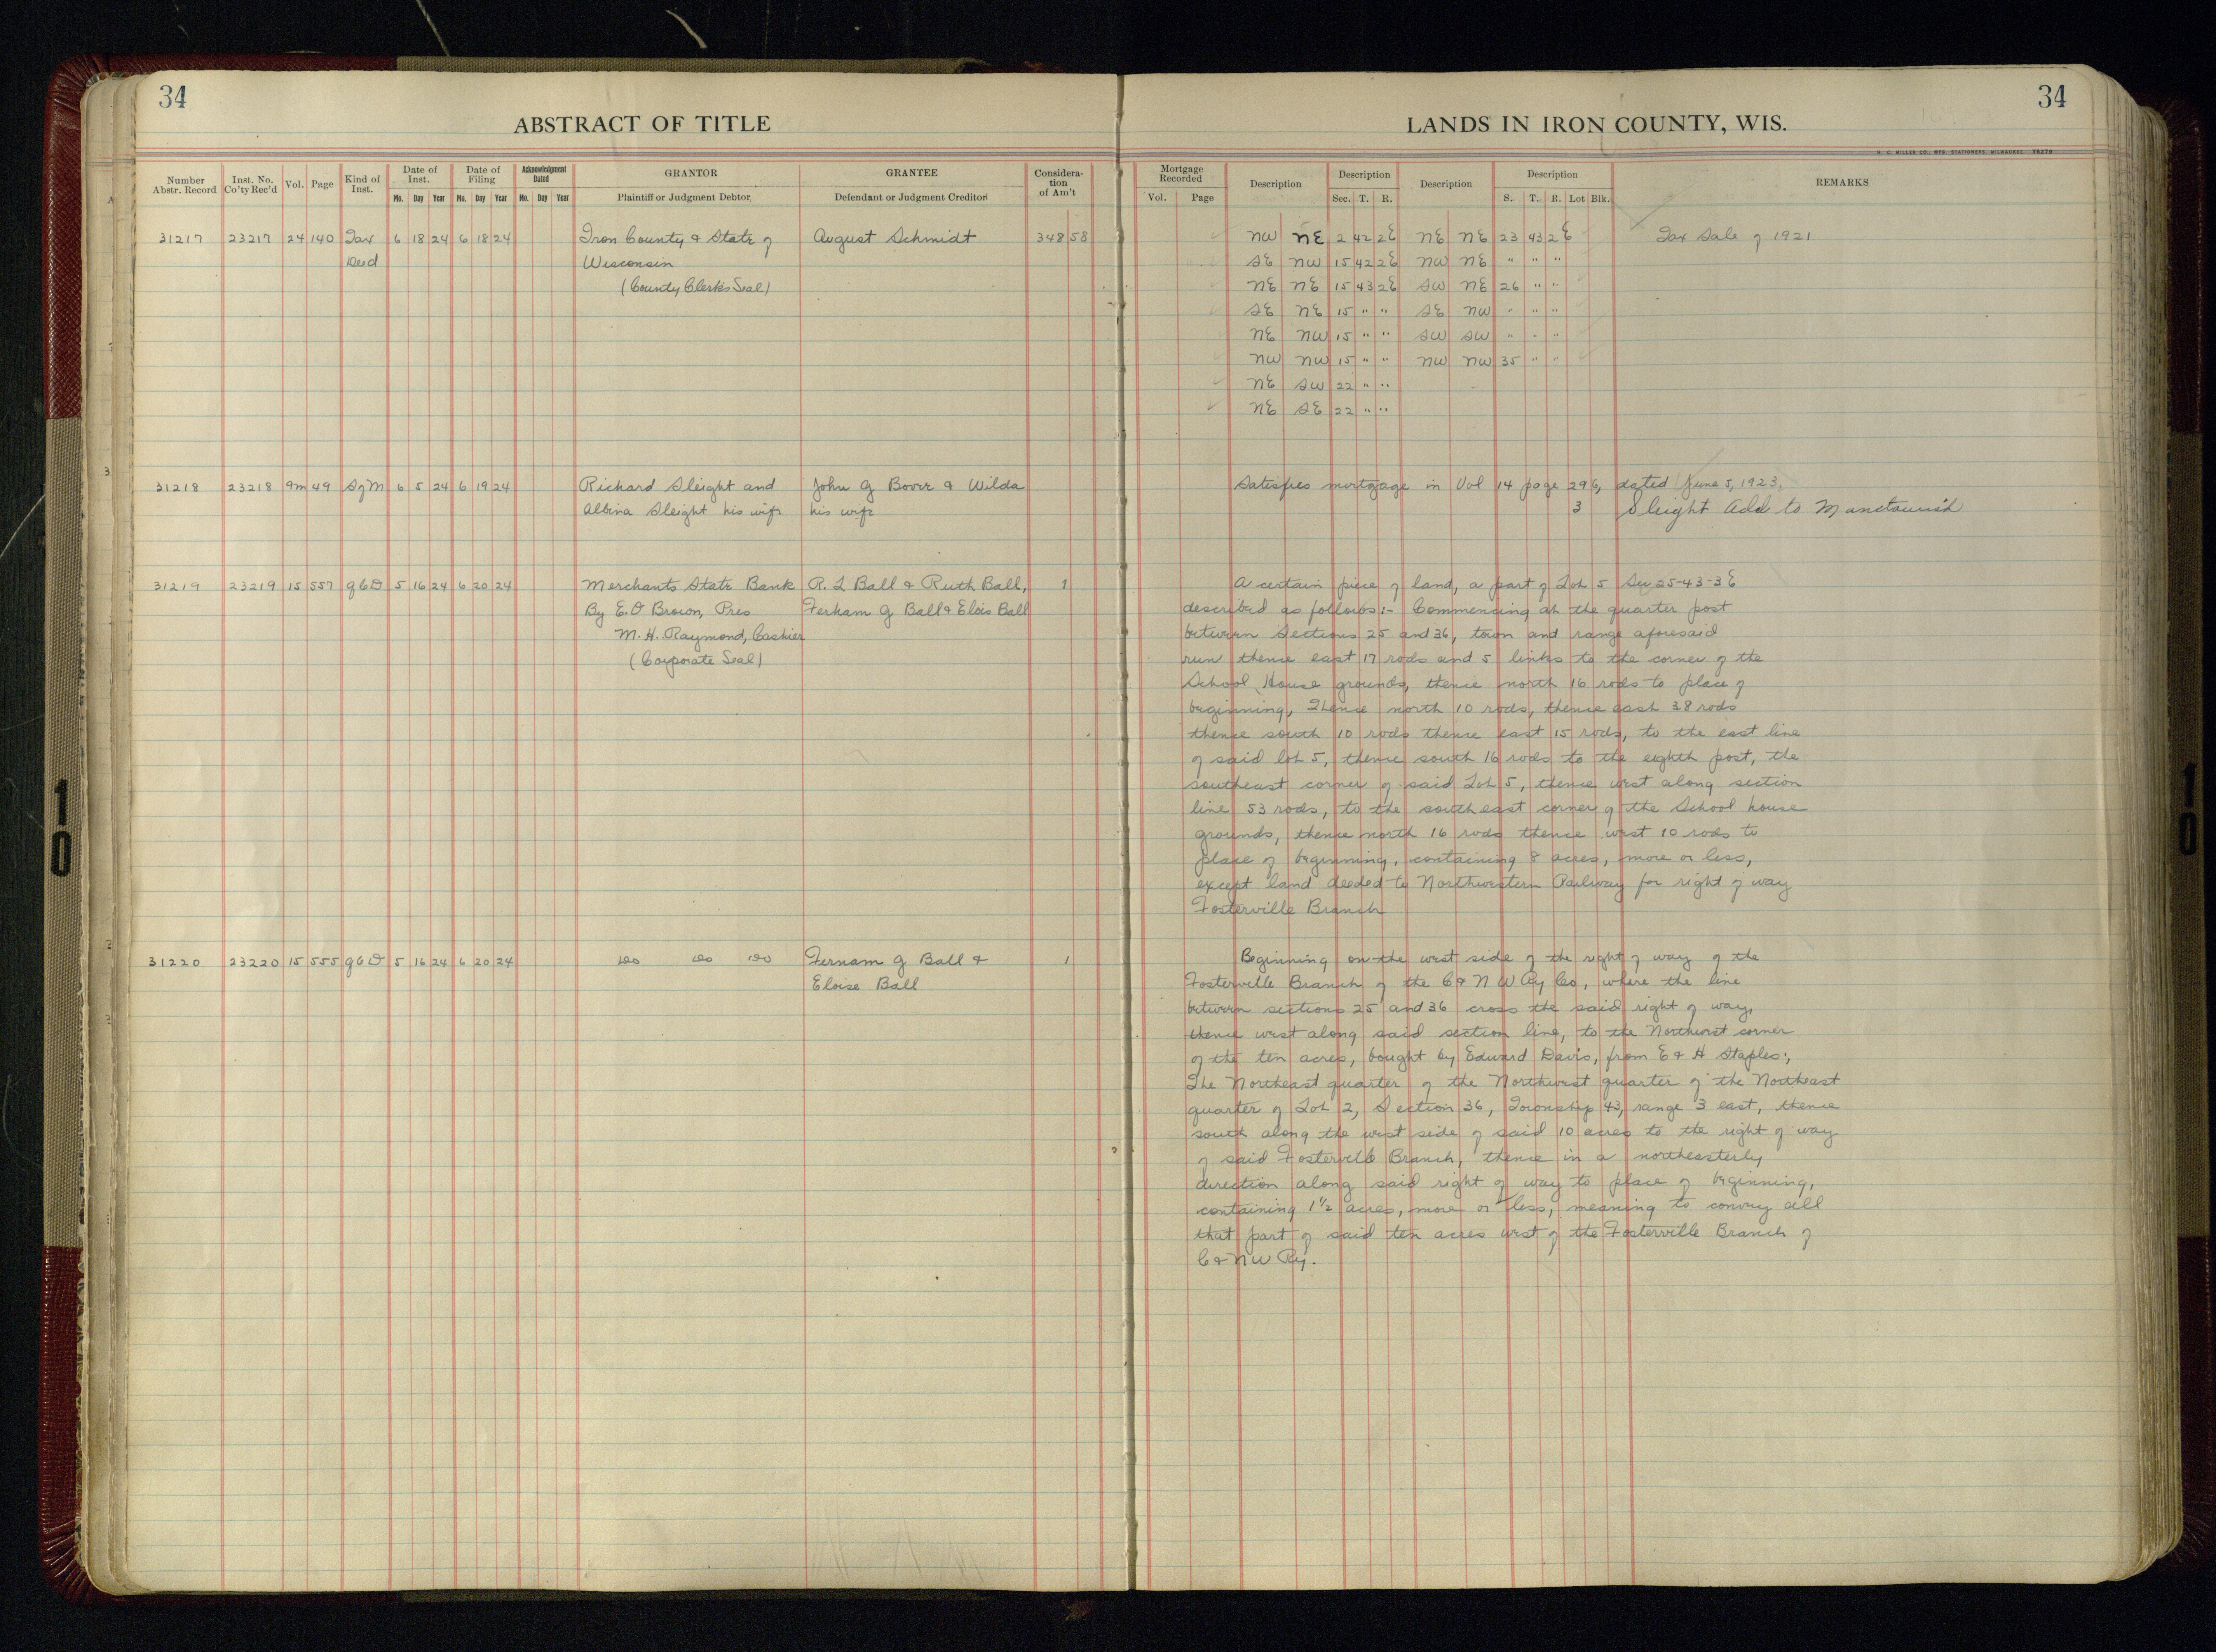 34
34
ABSTRACT OF TITLE
LANDS IN IRON COUNTY, WIS.
H. C. MILLER CO., MFG. STATIONERS, MILWAUKEE Y6270
Number Abstr. Record
Inst. No. Co'ty Rec'd
Vol.
Page
Kind of Inst.
Date of Inst.
Mo. Day Year
Date of Filing
Mo. Day Year
Acknowledgment Dated
Mo. Day Year
GRANTOR
Plaintiff or Judgment Debtor
GRANTEE
Defendant or Judgment Creditor
Consideration of Am't
Mortgage Recorded
Vol. Page
Description
Description
Sec. T. R.
Description
Description
S. T. R. Lot Blk.
REMARKS
31217 23217 24 140 Tax 6 18 24 6 18 24 Iron County & State of August Schmidt 348 58 NW NE 2 42 2E NE NE 23 43 2E Tax Sale of 1921
Deed Wisconsin SE NW 15 42 2E NW NE " " "
(County Clerk's Seal) NE NE 15 43 2E SW NE 26 " "
SE NE 15 " " SE NW " " "
NE NW 15 " " SW SW " " "
NW NW 15 " " NW NW 35 " "
NE SW 22 " "
NE SE 22 " "
31218 23218 9m 49 S of M 6 5 24 6 19 24 Richard Sleight and John G Bovee & Wilda Satisfies mortgage in Vol 14 page 296, dated June 5, 1923.
Albina Sleight his wife his wife 3 Sleight Add to
31219 23219 15 557 QCD 5 16 24 6 20 24 Merchants State Bank R. L Ball & Ruth Ball, 1 A certain piece of land, a part of Lot 5 Sec 25-43-3E
By E. O Brown, Pres Ferham G Ball & Elois Ball described as follows:- Commencing at the quarter post
M. H. Raymond, Cashier between Sections 25 and 36, town and range aforesaid
(Corporate Seal) run thence east 17 rods and 5 links to the corner of the
School House grounds, thence north 16 rods to place of
beginning, Thence north 10 rods, thence east 38 rods
thence south 10 rods thence east 15 rods, to the east line
of said lot 5, thence south 16 rods to the eighth post, the
southeast corner of said Lot 5, thence west along section
line 53 rods, to the southeast corner of the School house
grounds, thence north 16 rods thence west 10 rods to
place of beginning, containing 8 acres, more or less,
except land deeded to Northwestern Railway for right of way
Fosterville Branch
31220 23220 15 555 QCD 5 16 24 6 20 24 do do do Fernam G Ball & 1 Beginning on the west side of the right of way of the
Eloise Ball Fosterville Branch of the C & N W Ry Co, where the line
between sections 25 and 36 cross the said right of way,
thence west along said section line, to the Northwest corner
of the ten acres, bought by Edward Davis, from E & H Staples:,
The Northeast quarter of the Northwest quarter of the Northeast
quarter of Lot 2, Section 36, Township 43, range 3 east, thence
south along the west side of said 10 acres to the right of way
of said Fosterville Branch, thence in a northeasterly
direction along said right of way to place of beginning,
containing 1½ acres, more or less, meaning to convey all
that part of said ten acres west of the Fosterville Branch of
C & N W Ry.
10
10